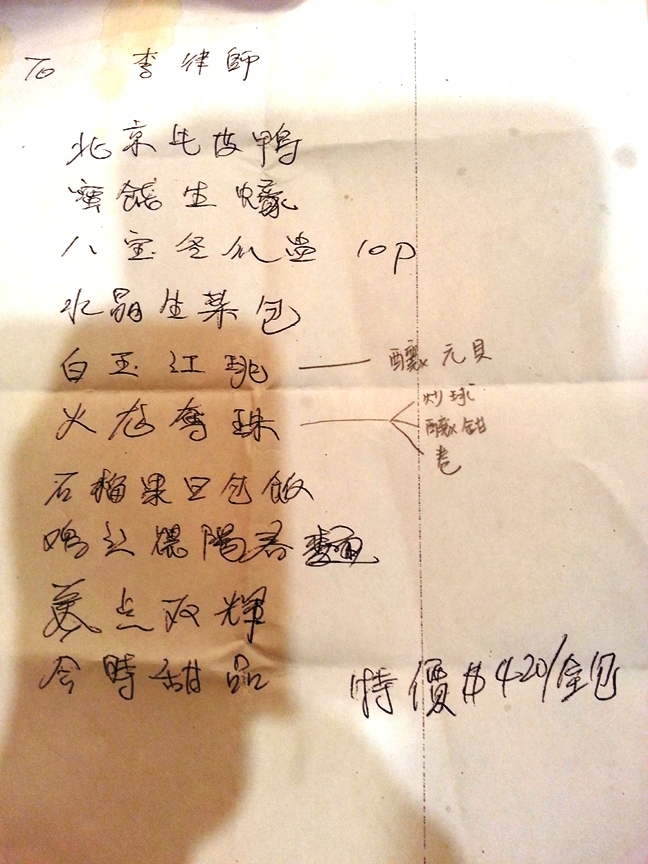 To 李律師
北京片皮鴨
蜜餞生蠔
八宝冬瓜盅 10p
水晶生菜包
白玉江珧 — 釀元貝
火龙奪珠 — 炒球
釀鉗
卷
石榴果包飯
鸡丝煨陽春麵
美点双輝
合時甜品 特價$420/全包